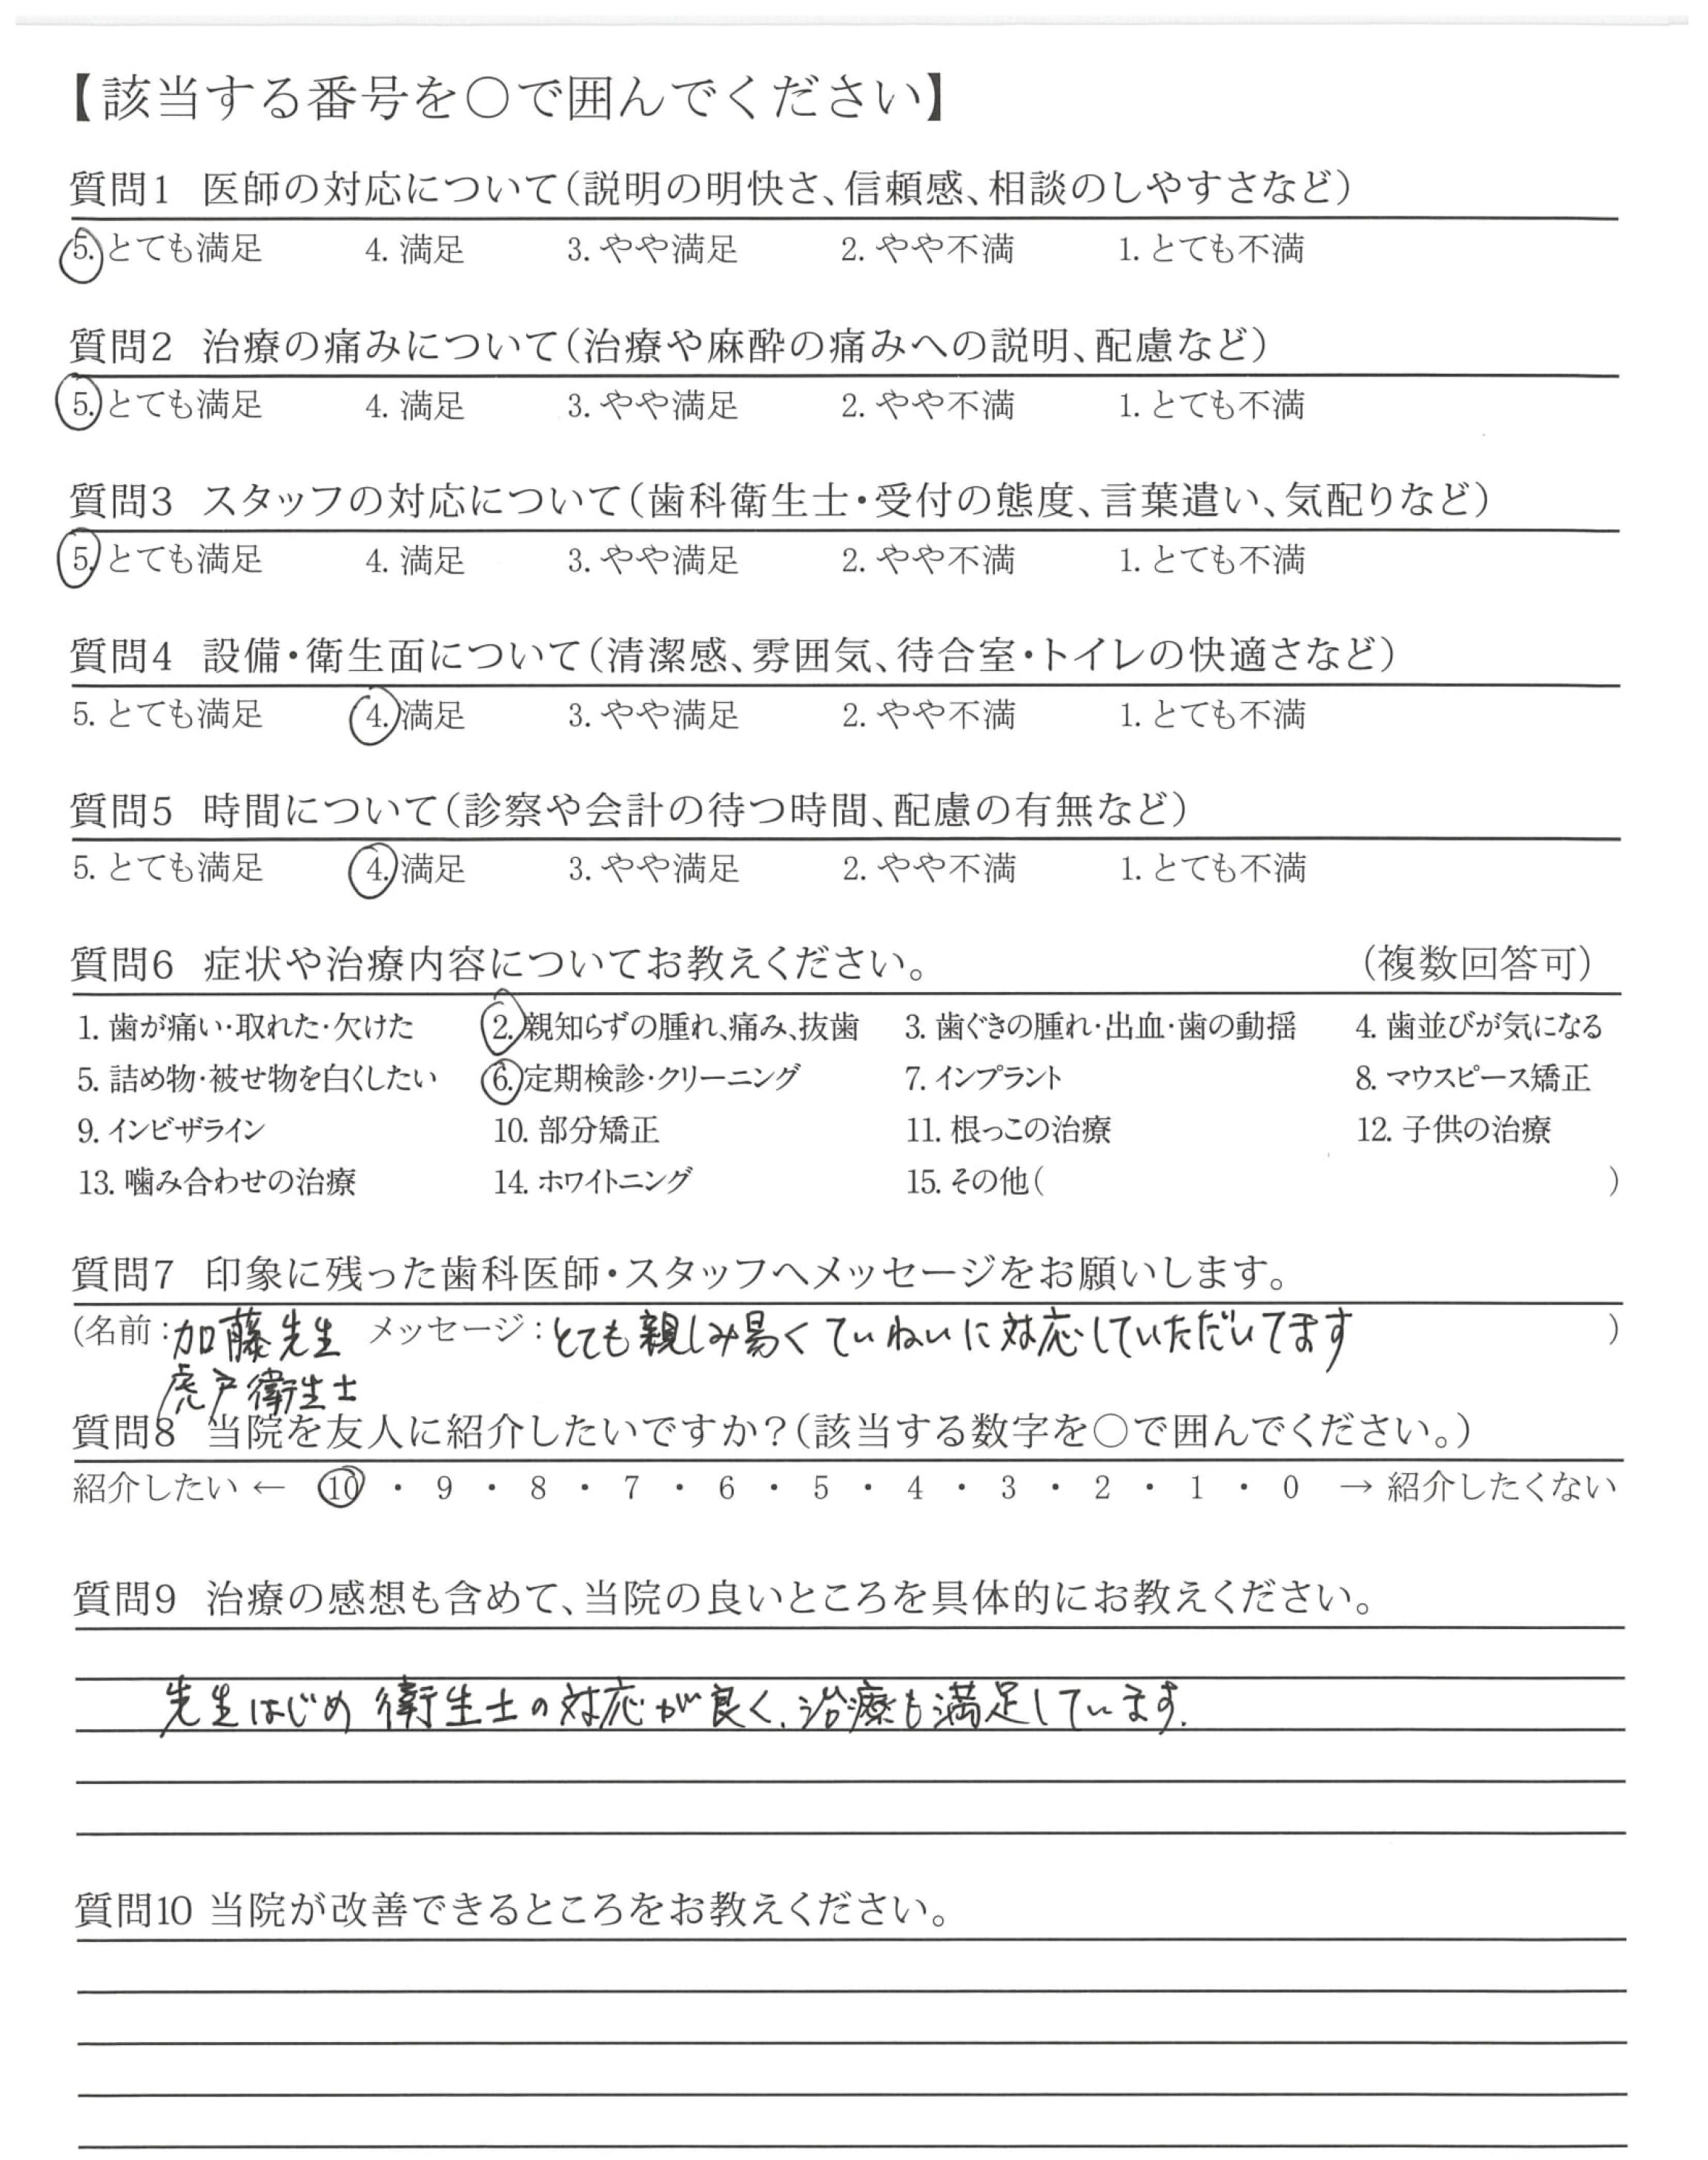 【該当する番号を○で囲んでください】
質問1 医師の対応について（説明の明快さ、信頼感、相談のしやすさなど）
5. とても満足 4. 満足 3. やや満足 2. やや不満 1. とても不満
質問2 治療の痛みについて（治療や麻酔の痛みへの説明、配慮など）
5. とても満足 4. 満足 3. やや満足 2. やや不満 1. とても不満
質問3 スタッフの対応について（歯科衛生士・受付の態度、言葉遣い、気配りなど）
5. とても満足 4. 満足 3. やや満足 2. やや不満 1. とても不満
質問4 設備・衛生面について（清潔感、雰囲気、待合室・トイレの快適さなど）
5. とても満足 4. 満足 3. やや満足 2. やや不満 1. とても不満
質問5 時間について（診察や会計の待つ時間、配慮の有無など）
5. とても満足 4. 満足 3. やや満足 2. やや不満 1. とても不満
質問6 症状や治療内容についてお教えください。 （複数回答可）
1. 歯が痛い・取れた・欠けた 2. 親知らずの腫れ、痛み、抜歯 3. 歯ぐきの腫れ・出血・歯の動揺 4. 歯並びが気になる
5. 詰め物・被せ物を白くしたい 6. 定期検診・クリーニング 7. インプラント 8. マウスピース矯正
9. インビザライン 10. 部分矯正 11. 根っこの治療 12. 子供の治療
13. 噛み合わせの治療 14. ホワイトニング 15. その他（ ）
質問7 印象に残った歯科医師・スタッフへメッセージをお願いします。
（名前：加藤先生 メッセージ：とても親しみ易くていねいに対応していただいてます ）
虎戸衛生士
質問8 当院を友人に紹介したいですか？（該当する数字を○で囲んでください。）
紹介したい ← 10 ・ 9 ・ 8 ・ 7 ・ 6 ・ 5 ・ 4 ・ 3 ・ 2 ・ 1 ・ 0 → 紹介したくない
質問9 治療の感想も含めて、当院の良いところを具体的にお教えください。
先生はじめ衛生士の対応が良く、治療も満足しています。
質問10 当院が改善できるところをお教えください。